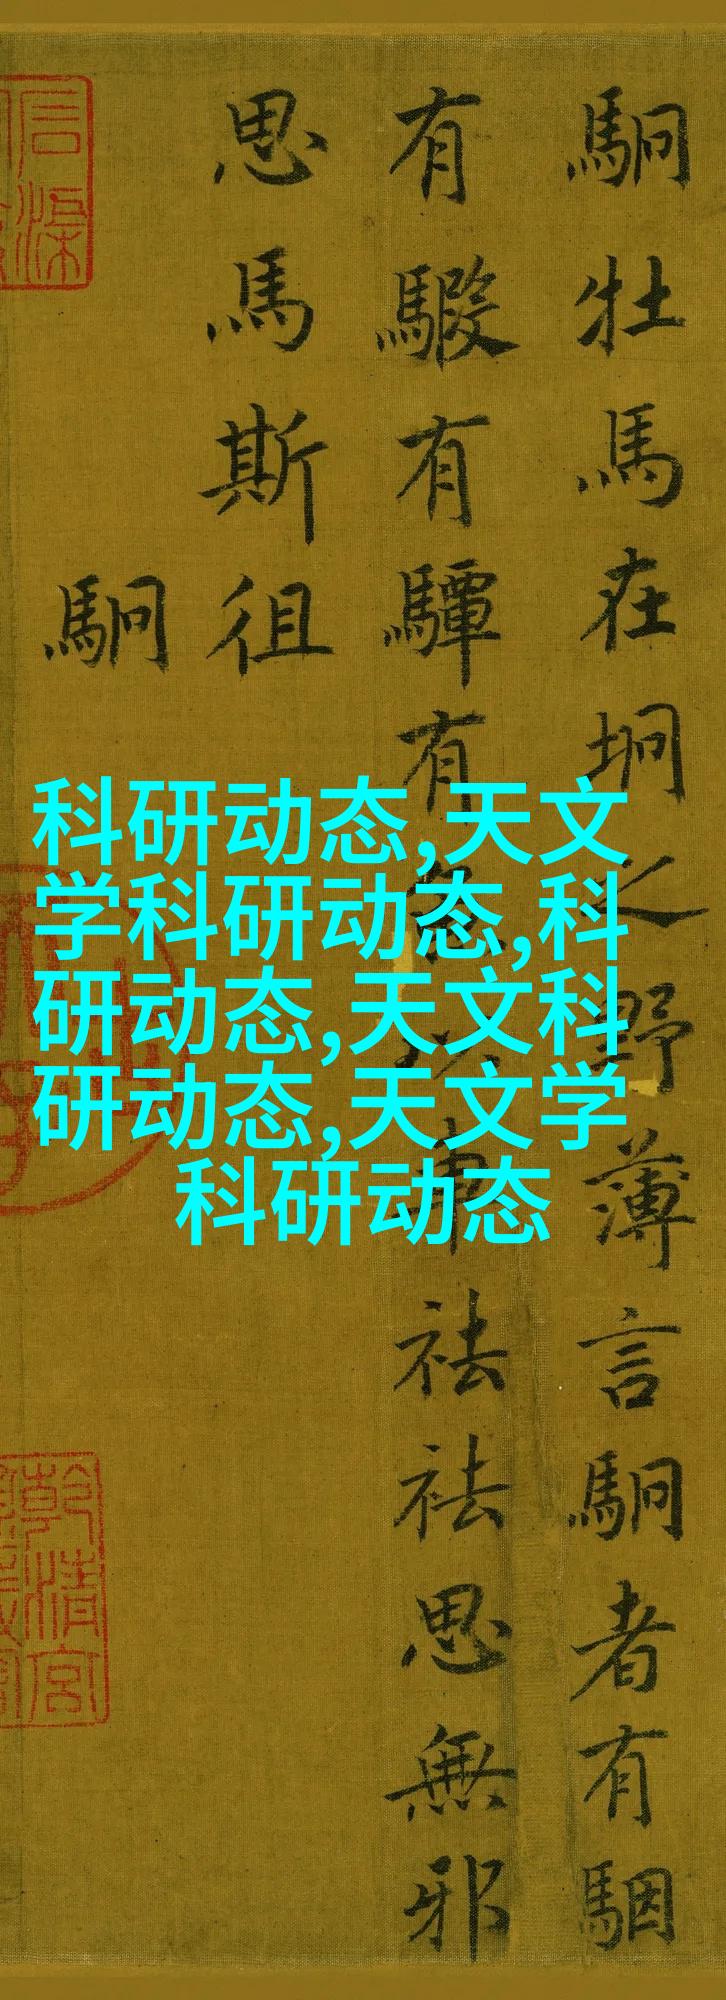 駉牡馬在坰之野薄言駉者有駰
有騢有驔有魚以車祛祛思無邪
思馬斯徂
駉
科研动态,天文
学科研动态,科
研动态,天文科
研动态,天文学
科研动态
乾清宮